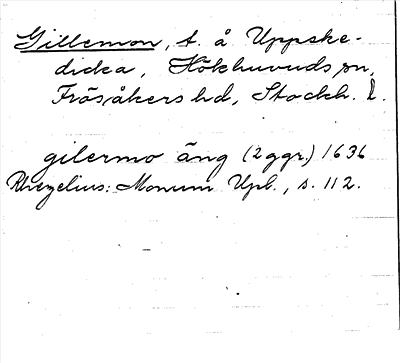 Gillemon, t. å Uppske-
dicka, Hökhuvuds sn,
Frösåkers hd, Stockh. l.
gilermo äng (2 ggr) 1636
Rhezelius: Monum Upl., s. 112.